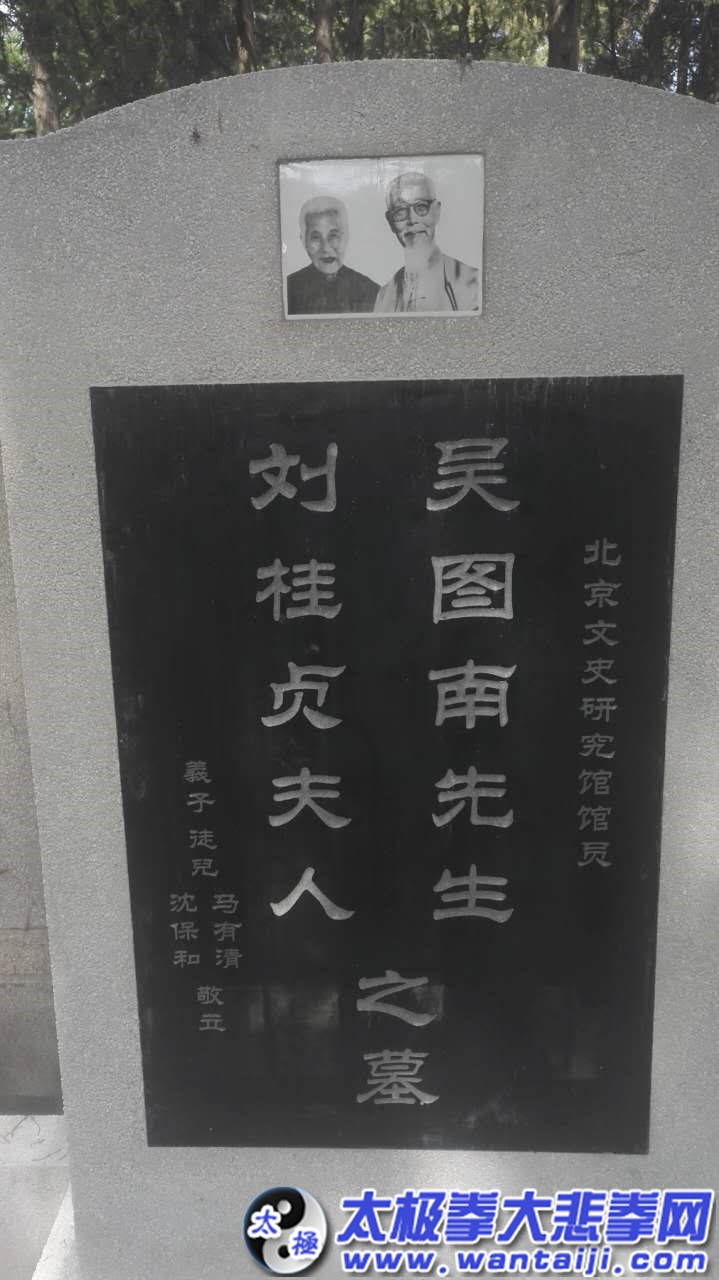 北京文史研究馆馆员
吴图南先生
刘桂贞夫人
之墓
義子徒兒
马有清
沈保和
敬立
太極
太极拳大悲拳网
www.wantaiji.com